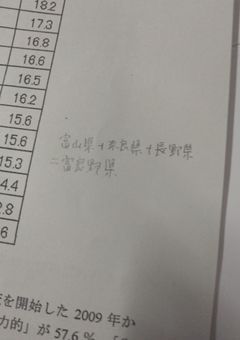 18.2
17.3
16.8
16.6
16.5
16.2
15.6
15.6
15.3
4.4
2.8
6
富山県+奈良県+長野県
=富良野県
を開始した 2009 年か
力的」が 57.6 %、「